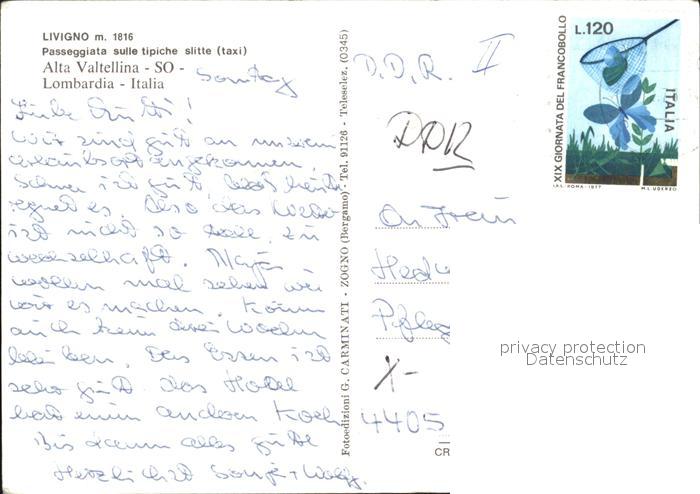 LIVIGNO m. 1816
Passeggiata sulle tipiche slitte (taxi)
Alta Valtellina - SO -
Lombardia - Italia
Sonntag
Liebe
Wir sind gut an unserem
Urlaubsort angekommen.
ist gut heute
regnet es. Also das Wetter
ist nicht so zu
wechselhaft.
wollen mal sehen wie
wir es machen. Können
auch kein drei Wochen
bleiben. Das Essen ist
sehr gut das Hotel
hat einen anderen Koch
Bis dann alles gute
Herzlichst
Fotoedizioni G. CARMINATI - ZOGNO (Bergamo) - Tel. 91126 - Teleselez. (0345)
D.D.R. II
DDR
An Frau
Pfleg
X-
4405
CR
XIX GIORNATA DEL FRANCOBOLLO
L.120
ITALIA
I.P.S.-ROMA-1977
privacy protection
Datenschutz